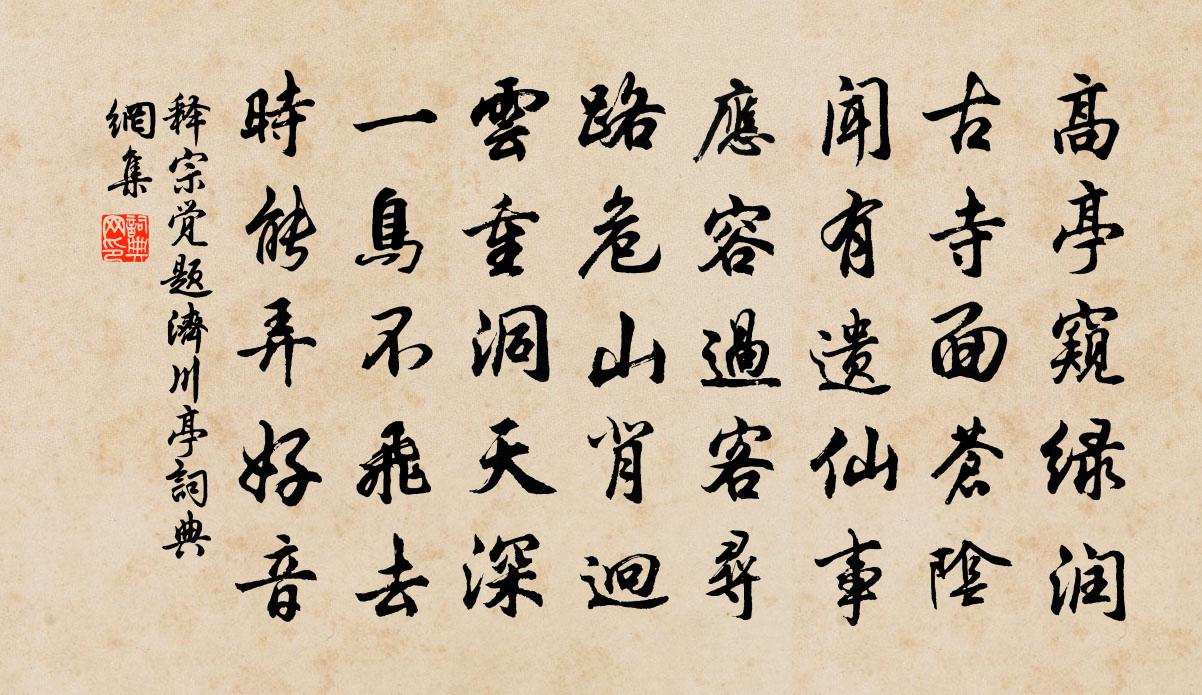 高亭窺绿润
古寺面蒼陰
闻有遺仙事
應容過客尋
路危山肯迴
雲重洞天深
一鳥不飛去
時能弄好音
释宗觉题濟川亭詞典
網集
詞典网印